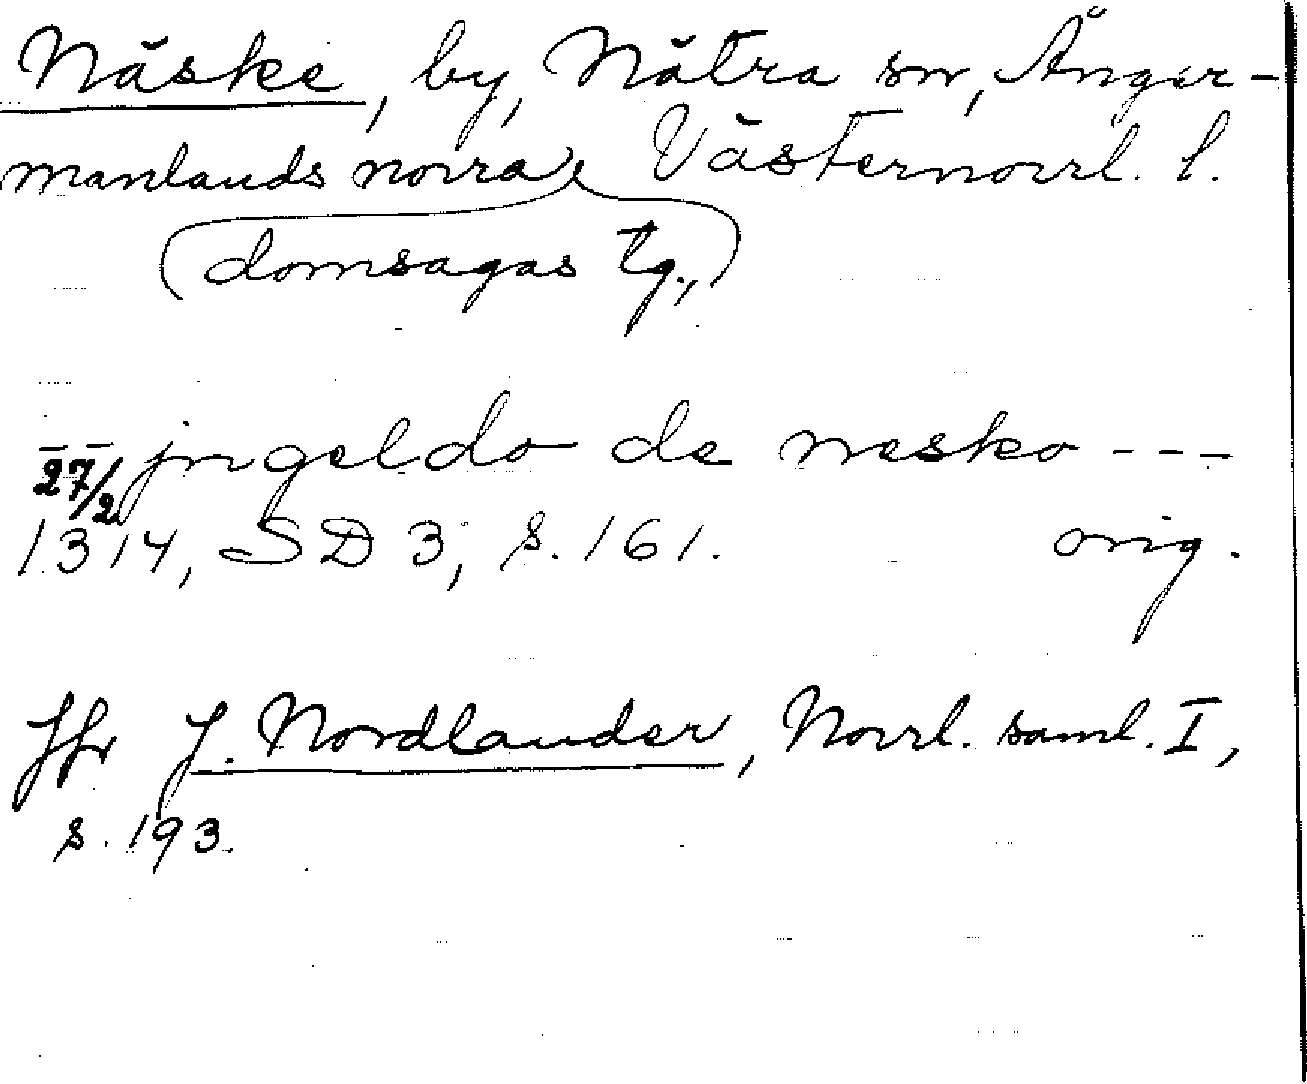 Näske, by, Nätra sn, Ånger-
manlands norra Västernorrl. l.
(domsagas tg.,)
-- jngeldo de nesko ---
27/2 1314, SD 3, s. 161. orig.
Jfr J. Nordlander, Norrl. saml. I,
s. 193.